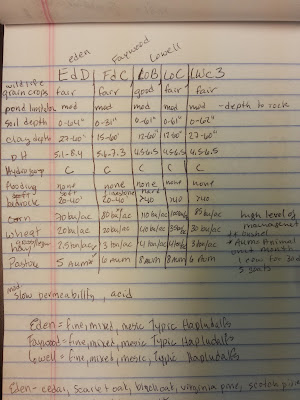 eden Faywood Lowell
EdD FdC LoB LoC LWC3
wildlife
grain crops fair fair good fair fair
pond limitation mod mod mod mod mod - depth to rock
soil depth 0-64" 0-31" 0-61" 0-61" 0-62"
clay depth 27-60" 15-60" 12-60" 12-60" 27-60"
pH 5.1-8.4 5.6-7.3 4.5-6.5 4.5-6.5 4.5-6.5
Hydro group C C C C C
flooding none none none none none
bedrock soft 20-40" limestone 20-40" hard >40 >40 >40
corn 70 bu/ac 80 bu/ac 110 bu/ac 85 bu/ac high level of
wheat 20 bu/ac 20 bu/ac 40 bu/ac 30 bu/ac management
hay 2.5 ton/ac 3 ton/ac 4 ton/ac 3 ton/ac * Aum = Animal
Pasture 5 Aum 6 Aum 8 Aum 8 Aum 6 Aum unit month
1 cow for 30d
5 goats
mod
slow permeability, acid
Eden = fine, mixed, mesic Typic Hapludalfs
Faywood = fine, mixed, mesic Typic Hapludalfs
Lowell = fine, mixed, mesic, Typic Hapludalfs
Eden - cedar, scarlet oat, black oat, virginia pine, scotch pine